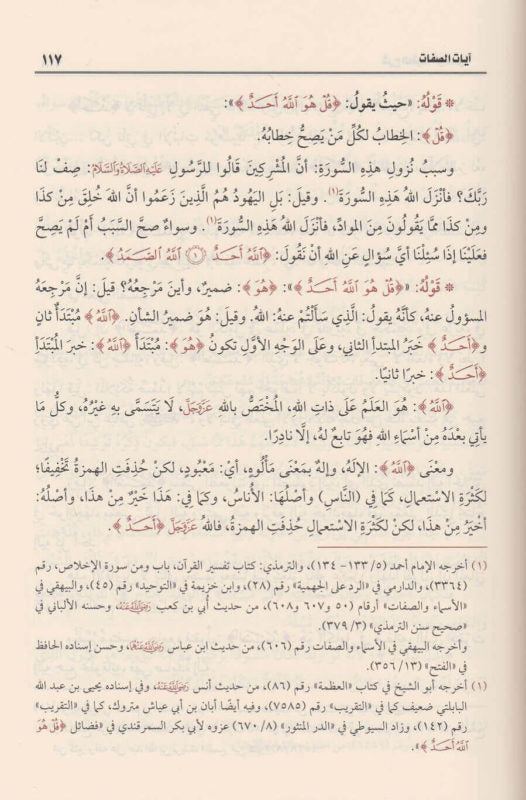 آيات الصفات ١١٧
* قَوْلُهُ: «حيثُ يقولُ: ﴿قُلْ هُوَ ٱللَّهُ أَحَدٌ﴾»:
﴿قُلْ﴾: الخِطابُ لكُلِّ مَنْ يَصِحُّ خِطابُهُ.
وسببُ نُزولِ هَذِهِ السُّورَةِ: أنَّ المُشْرِكينَ قَالُوا للرَّسُولِ عَلَيْهِ الصَّلَاةُ وَالسَّلَامُ: صِفْ لنَا
رَبَّكَ؟ فأنْزَلَ اللهُ هَذِهِ السُّورَةَ(١). وقيلَ: بَلِ اليَهُودُ هُمُ الَّذِينَ زَعَمُوا أنَّ اللهَ خُلِقَ مِنْ كَذَا
ومِنْ كَذا ممَّا يَقُولُونَ مِنَ الموادِّ، فأنْزَلَ اللهُ هَذِهِ السُّورَةَ(١). وسواءٌ صحَّ السَّبَبُ أمْ لَمْ يَصِحَّ
فعَلَيْنَا إذَا سُئِلْنَا أيَّ سُؤالٍ عَنِ اللهِ أنْ نَقُولَ: ﴿ٱللَّهُ أَحَدٌ ۝١ ٱللَّهُ ٱلصَّمَدُ﴾.
* قَوْلُهُ: «﴿قُلْ هُوَ ٱللَّهُ أَحَدٌ﴾»: ﴿هُوَ﴾: ضميرٌ، وأينَ مَرْجِعُهُ؟ قيلَ: إنَّ مَرْجِعَهُ
المسؤولُ عنهُ، كأنَّهُ يقولُ: الَّذي سَأَلْتُمْ عنهُ: اللهُ. وقيلَ: هُوَ ضميرُ الشأنِ. ﴿ٱللَّهُ﴾ مُبْتَدَأٌ ثانٍ
و﴿أَحَدٌ﴾ خَبَرُ المبتدأِ الثانِي، وعَلَى الوَجْهِ الأوَّلِ تكونُ ﴿هُوَ﴾: مُبْتَدَأ ﴿ٱللَّهُ﴾: خبرَ المُبْتَدَأِ
﴿أَحَدٌ﴾: خبرًا ثانيًا.
﴿ٱللَّهُ﴾: هُوَ العَلَمُ عَلَى ذاتِ اللهِ، المُخْتَصُّ باللهِ عَزَّوَجَلَّ، لَا يَتَسَمَّى بهِ غيْرُهُ، وكلُّ مَا
يأتِي بعْدَهُ مِنْ أسْمَاءِ اللهِ فهُوَ تابعٌ لهُ، إلَّا نادِرًا.
ومعْنَى ﴿ٱللَّهُ﴾: الإلَهُ، وإلهٌ بمَعْنَى مَأْلُوهٍ، أيْ: مَعْبُودٍ، لكنْ حُذِفَتِ الهمزةُ تَخْفِيفًا؛
لكَثْرَةِ الاسْتعمالِ، كَمَا فِي (النَّاسِ) وأصْلُهَا: الأُناسُ، وكمَا فِي: هَذَا خَيْرٌ مِنْ هَذَا، وأصْلُهُ:
أخْيَرُ مِنْ هذَا، لكنْ لكَثْرَةِ الاسْتعمالِ حُذِفَتِ الهمزةُ، فاللهُ عَزَّوَجَلَّ ﴿أَحَدٌ﴾.
(١) أخرجه الإمام أحمد (٥/ ١٣٣- ١٣٤)، والترمذي: كتاب تفسير القرآن، باب ومن سورة الإخلاص، رقم
(٣٣٦٤)، والدارمي في «الرد على الجهمية» رقم (٢٨)، وابن خزيمة في «التوحيد» رقم (٤٥)، والبيهقي في
«الأسماء والصفات» أرقام (٥٠ و٦٠٧ و٦٠٨)، من حديث أبي بن كعب رَضِيَ اللَّهُ عَنْهُ، وحسنه الألباني في
«صحيح سنن الترمذي» (٣/ ٣٧٩).
وأخرجه البيهقي في الأسماء والصفات رقم (٦٠٦)، من حديث ابن عباس رَضِيَ اللَّهُ عَنْهُ، وحسن إسناده الحافظ
في «الفتح» (١٣/ ٣٥٦).
(١) أخرجه أبو الشيخ في كتاب «العظمة» رقم (٨٦)، من حديث أنس رَضِيَ اللَّهُ عَنْهُ، وفي إسناده يحيى بن عبد الله
البابلتي ضعيف كما في «التقريب» رقم (٧٥٨٥)، وفيه أيضًا أبان بن أبي عياش متروك، كما في «التقريب»
رقم (١٤٢)، وزاد السيوطي في «الدر المنثور» (٨/ ٦٧٠) عزوه لأبي بكر السمرقندي في «فضائل ﴿قُلْ هُوَ
ٱللَّهُ أَحَدٌ﴾».